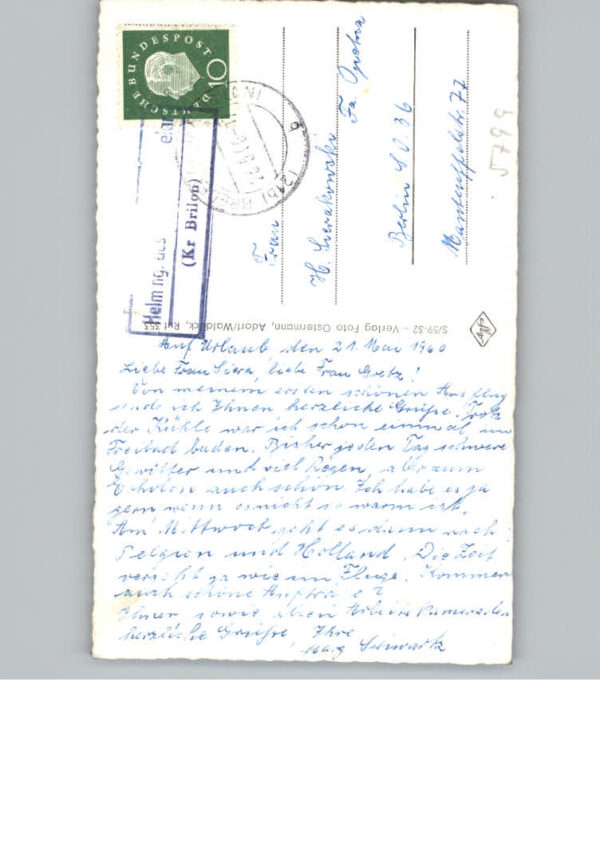 DEUTSCHE BUNDESPOST
10
Helmingh
(Kr Brilon)
Frau
H. Sierakowski Fa. Opetra
Berlin SO. 36
Manteuffelstr. 77
5799
S/59-32 - Verlag Foto Ostermann, Adorf/Waldeck, Ruf 353
Auf Urlaub, den 21. Mai 1960
Liebe Frau Siera, liebe Frau Goetz!
Von meinem ersten schönen Ausflug
sende ich Ihnen herzliche Grüße. Trotz
der Kühle war ich schon einmal im
Freibad baden. Bisher jeden Tag schwere
Gewitter und viel Regen, aber zum
Erholen auch schön. Ich habe es ja
gern wenn es nicht so warm ist.
Am Mittwoch geht es dann nach
Belgien und Holland. Die Zeit
vergeht ja wie im Fluge. Kommen
auch schöne Aufträge?
Ihnen sowie allen Arbeitskameraden
herzliche Grüße Ihre
Schwartz